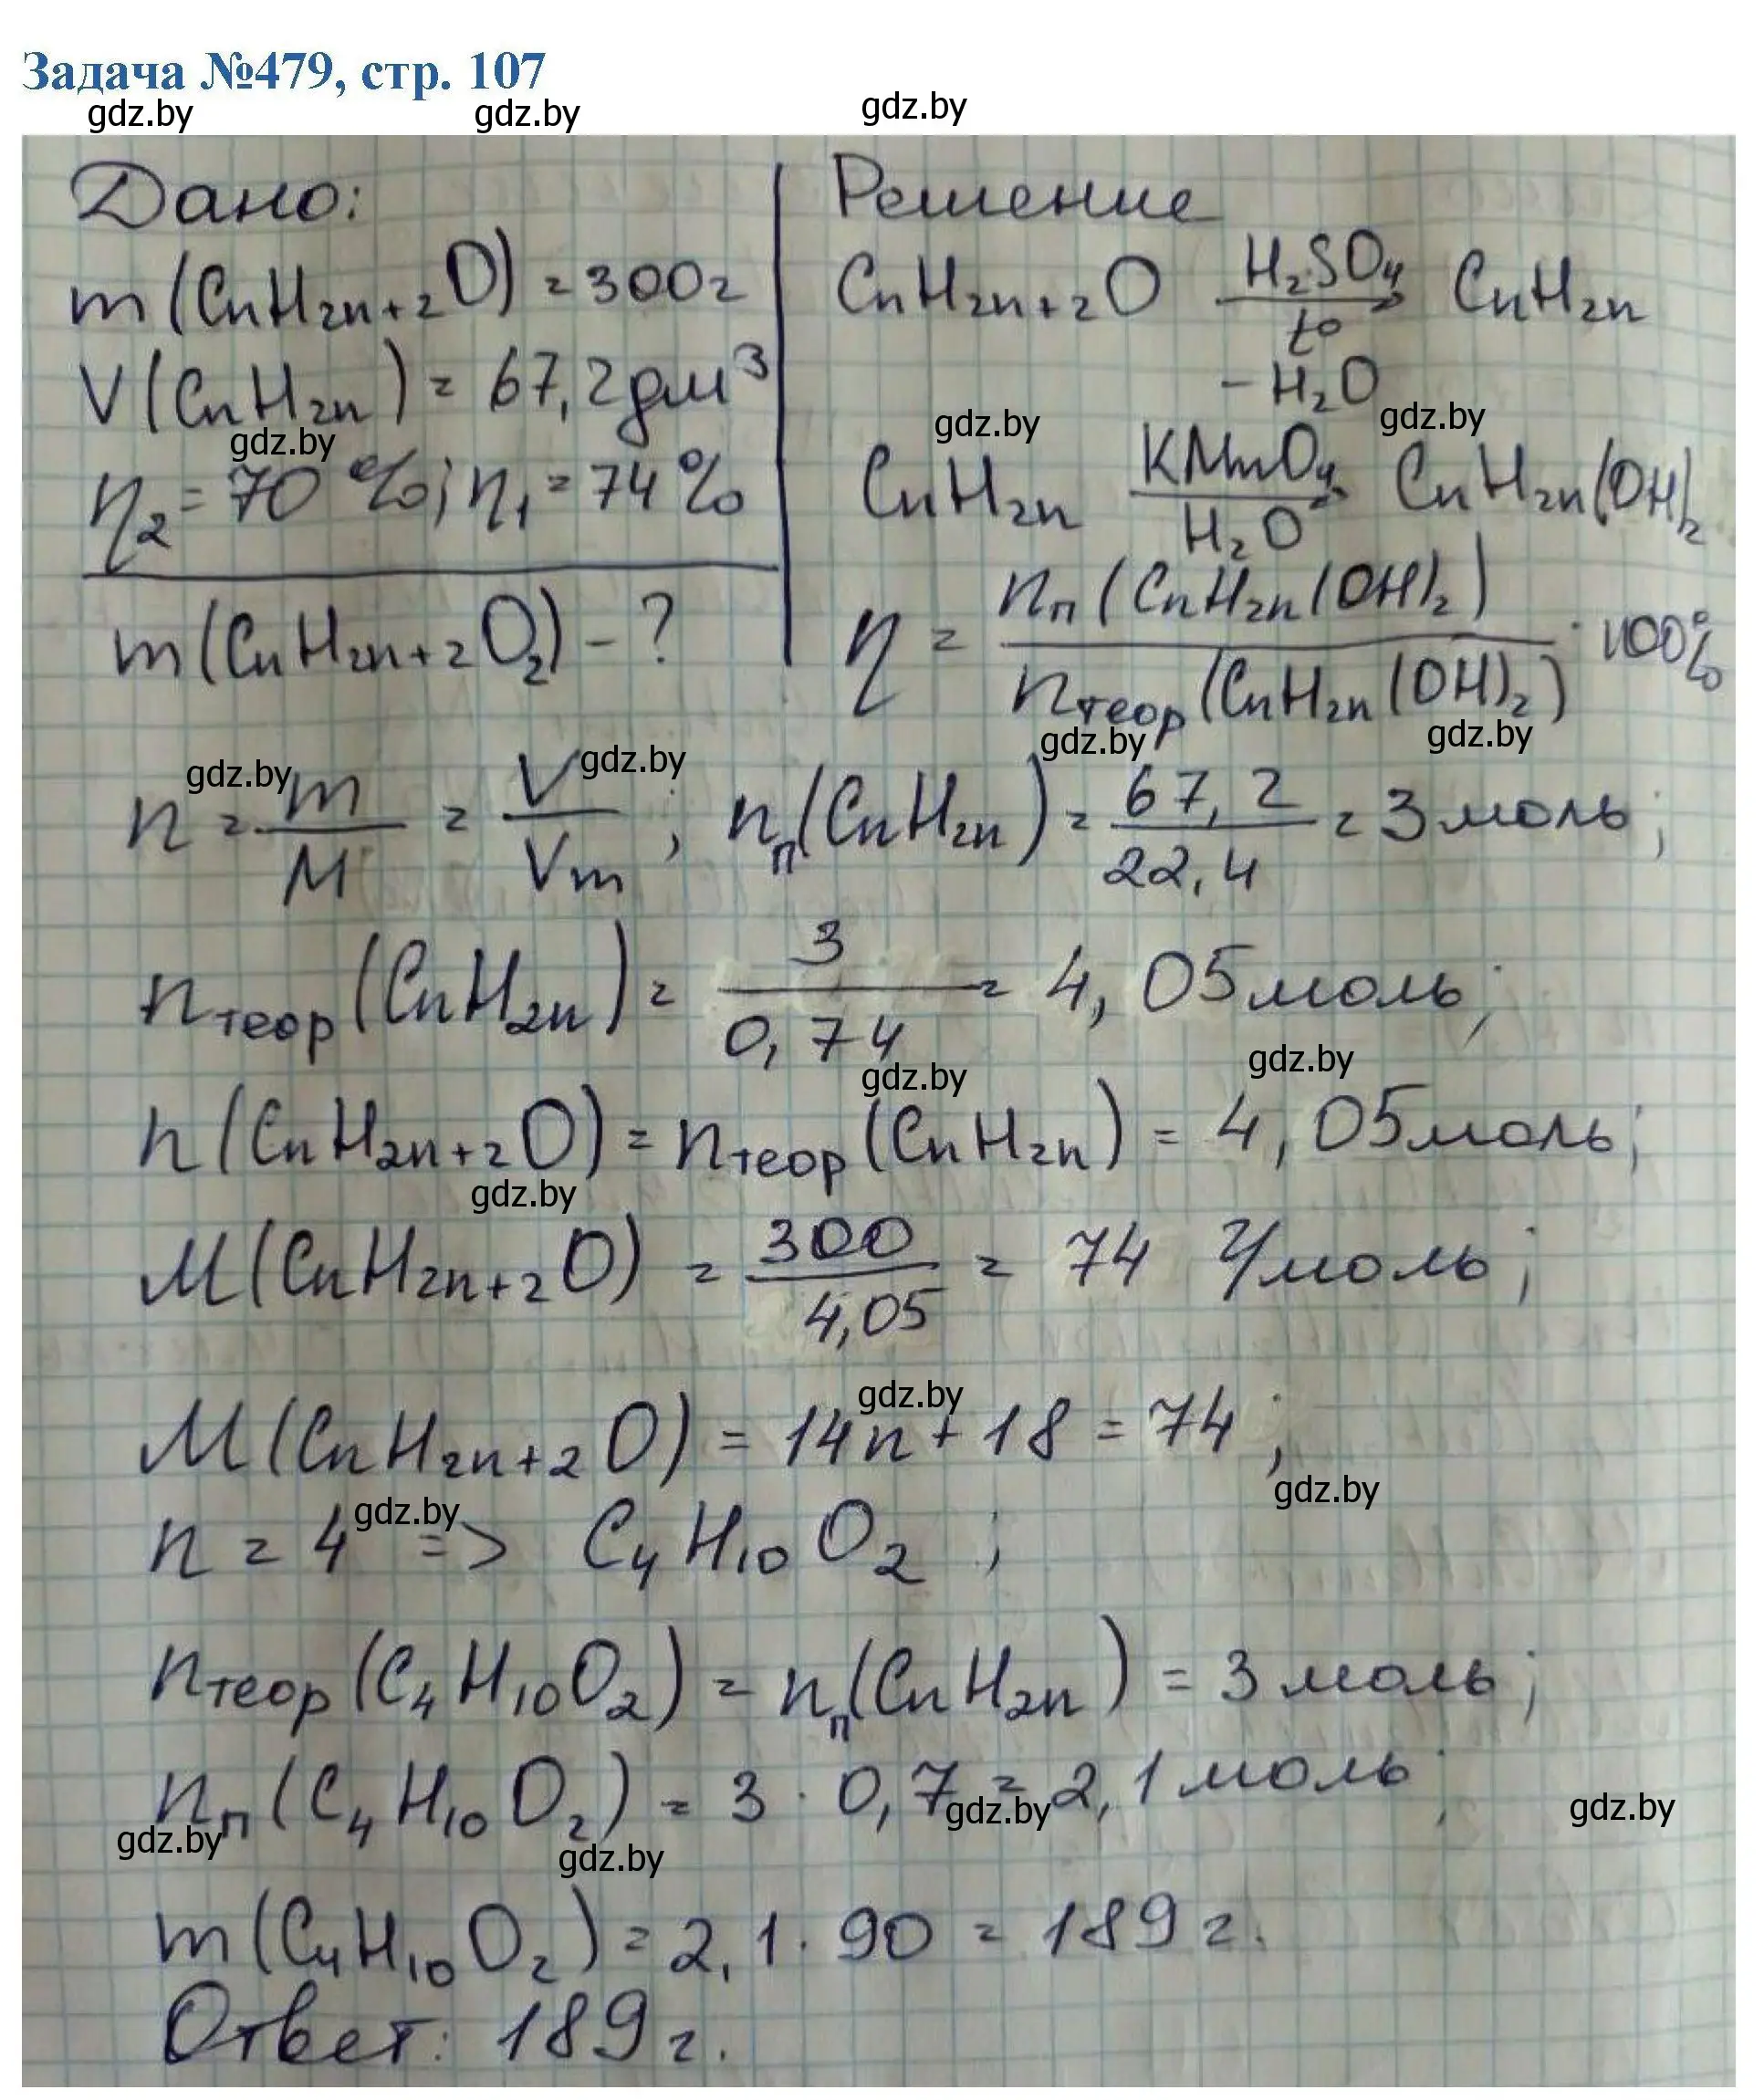 Задача №479, стр. 107
gdz.by gdz.by gdz.by
Дано:
m(CnH2n+2O) = 300г
V(CnH2n) = 67,2дм³
gdz.by
η2 = 70 %; η1 = 74%
m(CnH2n+2O2) - ?
Решение
CnH2n+2O H2SO4 → t° CnH2n
- H2O
gdz.by gdz.by
CnH2n KMnO4 → H2O CnH2n(OH)2
η = nп(CnH2n(OH)2) / nтеор(CnH2n(OH)2) · 100%
gdz.by gdz.by
gdz.by gdz.by
n = m/M = V/Vm ; nп(CnH2n) = 67,2/22,4 = 3 моль;
nтеор(CnH2n) = 3/0,74 = 4,05 моль;
gdz.by gdz.by
n(CnH2n+2O) = nтеор(CnH2n) = 4,05 моль;
gdz.by
M(CnH2n+2O) = 300/4,05 = 74 г/моль;
gdz.by
M(CnH2n+2O) = 14n + 18 = 74 ;
gdz.by
gdz.by
n = 4 => C4H10O2 ;
nтеор(C4H10O2) = nп(CnH2n) = 3 моль;
nп(C4H10O2) = 3 · 0,7 = 2,1 моль;
gdz.by gdz.by
gdz.by gdz.by
m(C4H10O2) = 2,1 · 90 = 189 г.
Ответ: 189 г.